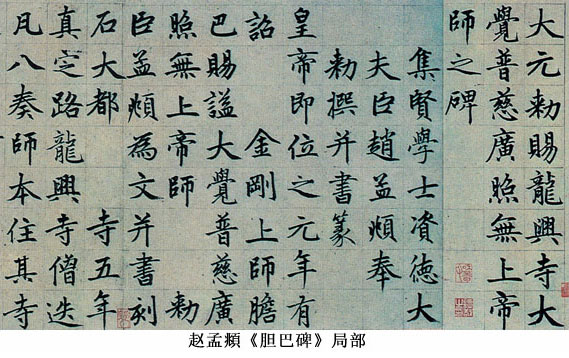 大元勅賜龍興寺大
覺普慈廣照無上帝
師之碑
集賢學士資德大
夫臣趙孟頫奉
勅撰并書篆
皇帝即位之元年有
詔金剛上師膽
巴賜謚大覺普慈廣
照無上帝師勅
臣孟頫為文并書刻
石大都寺五年
真定路龍興寺僧迭
凡八奏師本住其寺
赵孟頫《胆巴碑》局部